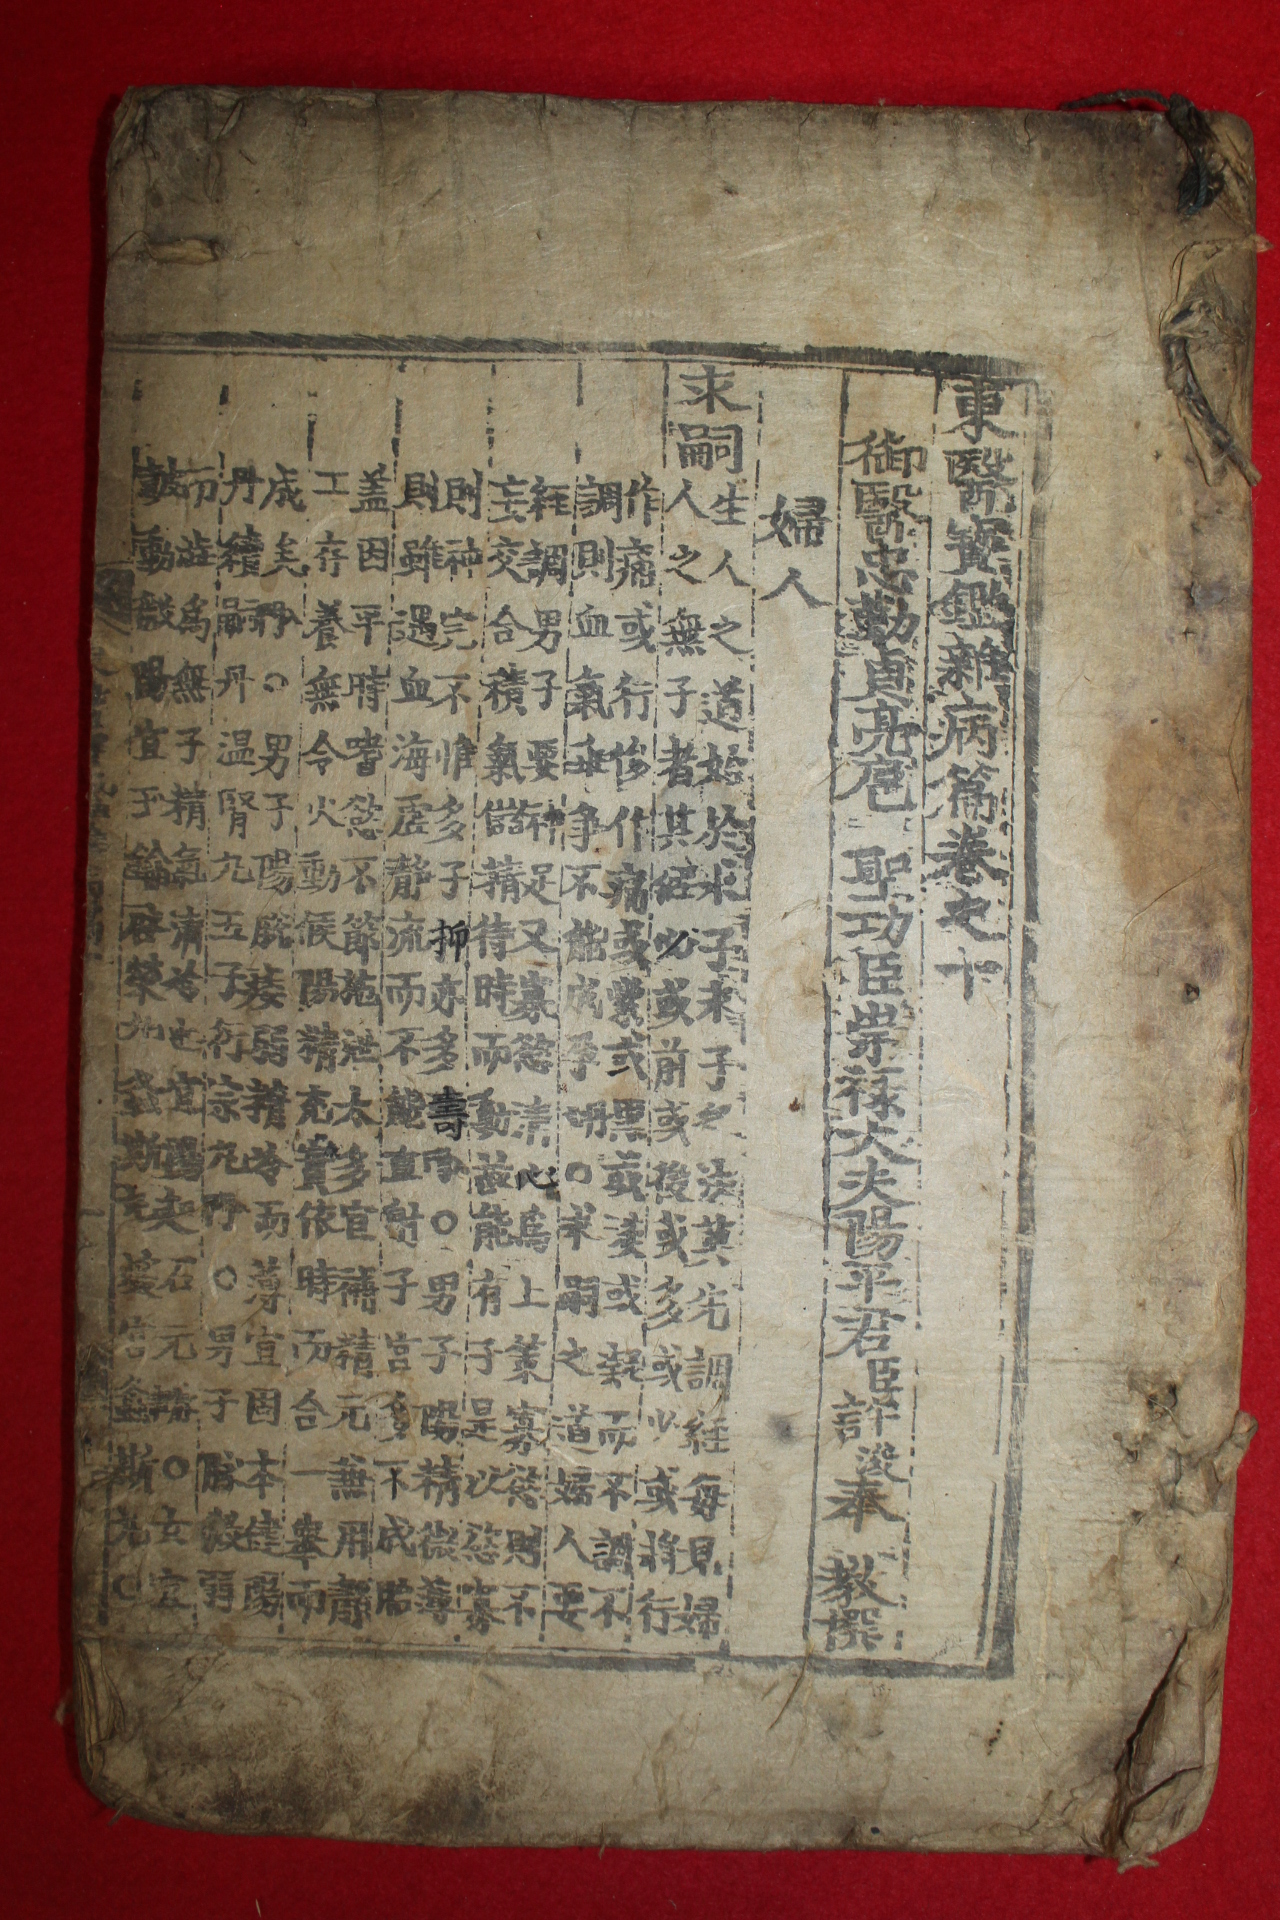 東醫寶鑑雜病篇卷之十
御醫忠勤貞亮扈 聖功臣崇祿大夫陽平君臣許浚奉 教撰
婦人
求嗣 生人之道始於求子求子之法莫先調經每見婦
人之無子者其經必或前或後或多或少或將行
作痛或行後作痛或紫或黑或淡或凝而不調不
調則血氣乖爭不能成孕 ○求嗣之道婦人要
經調男子要神足又寡慾淸心爲上策寡慾則不
妄交合積氣儲精待時而動故能有子是以慾寡
則神完不惟多子抑亦多壽 ○男子陽精微薄
則雖遇血海虛靜流而不能直射子宮多不成胎
盖因平時嗜慾不節施泄太多宜補精元兼用靜
工存養無令火動候陽精充實依時而合一擧而
成矣 ○男子陽脫痿弱精冷而薄宜固本健陽
丹續嗣丹溫腎丸五子衍宗丸 ○男子脉微弱
而澁爲無子精氣淸冷也宜陽起石元 ○女宜
動 陽宜玉鑰啓榮丸 螽斯丸煖宮螽斯丸○